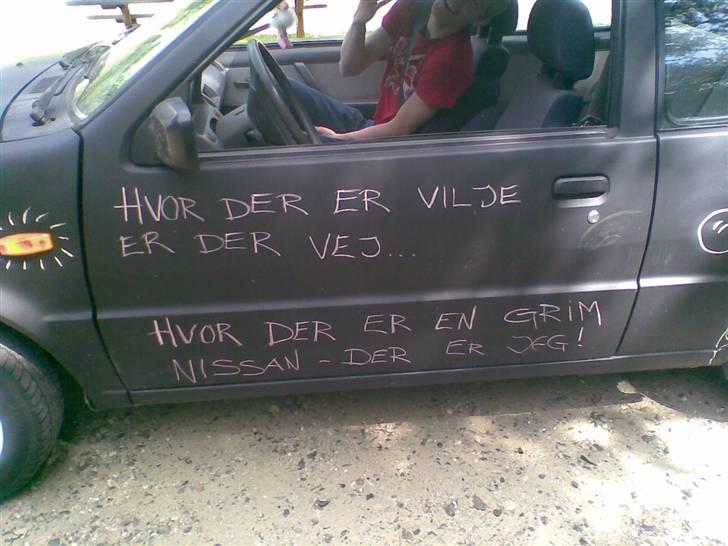 HVOR DER ER VILJE
ER DER VEJ...
HVOR DER ER EN GRIM
NISSAN - DER ER JEG!